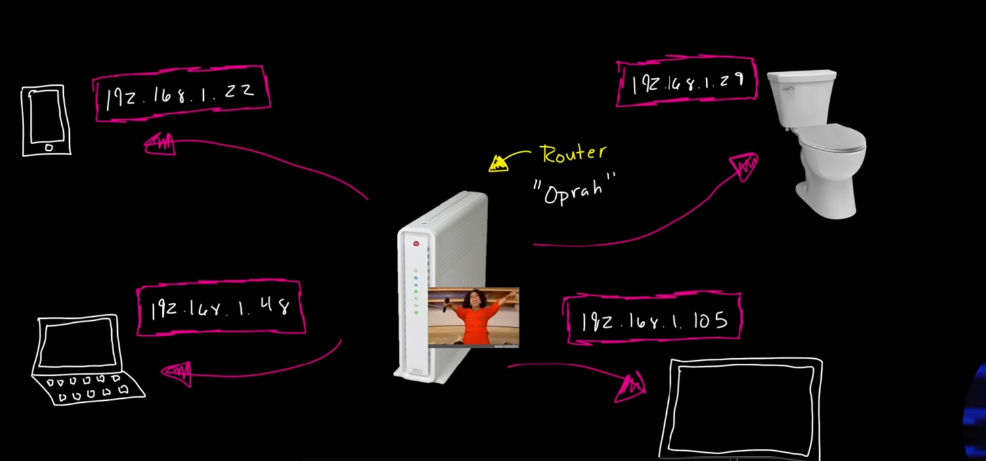 192.168.1.22
192.168.1.29
Router
"Oprah"
192.168.1.48
192.168.1.105